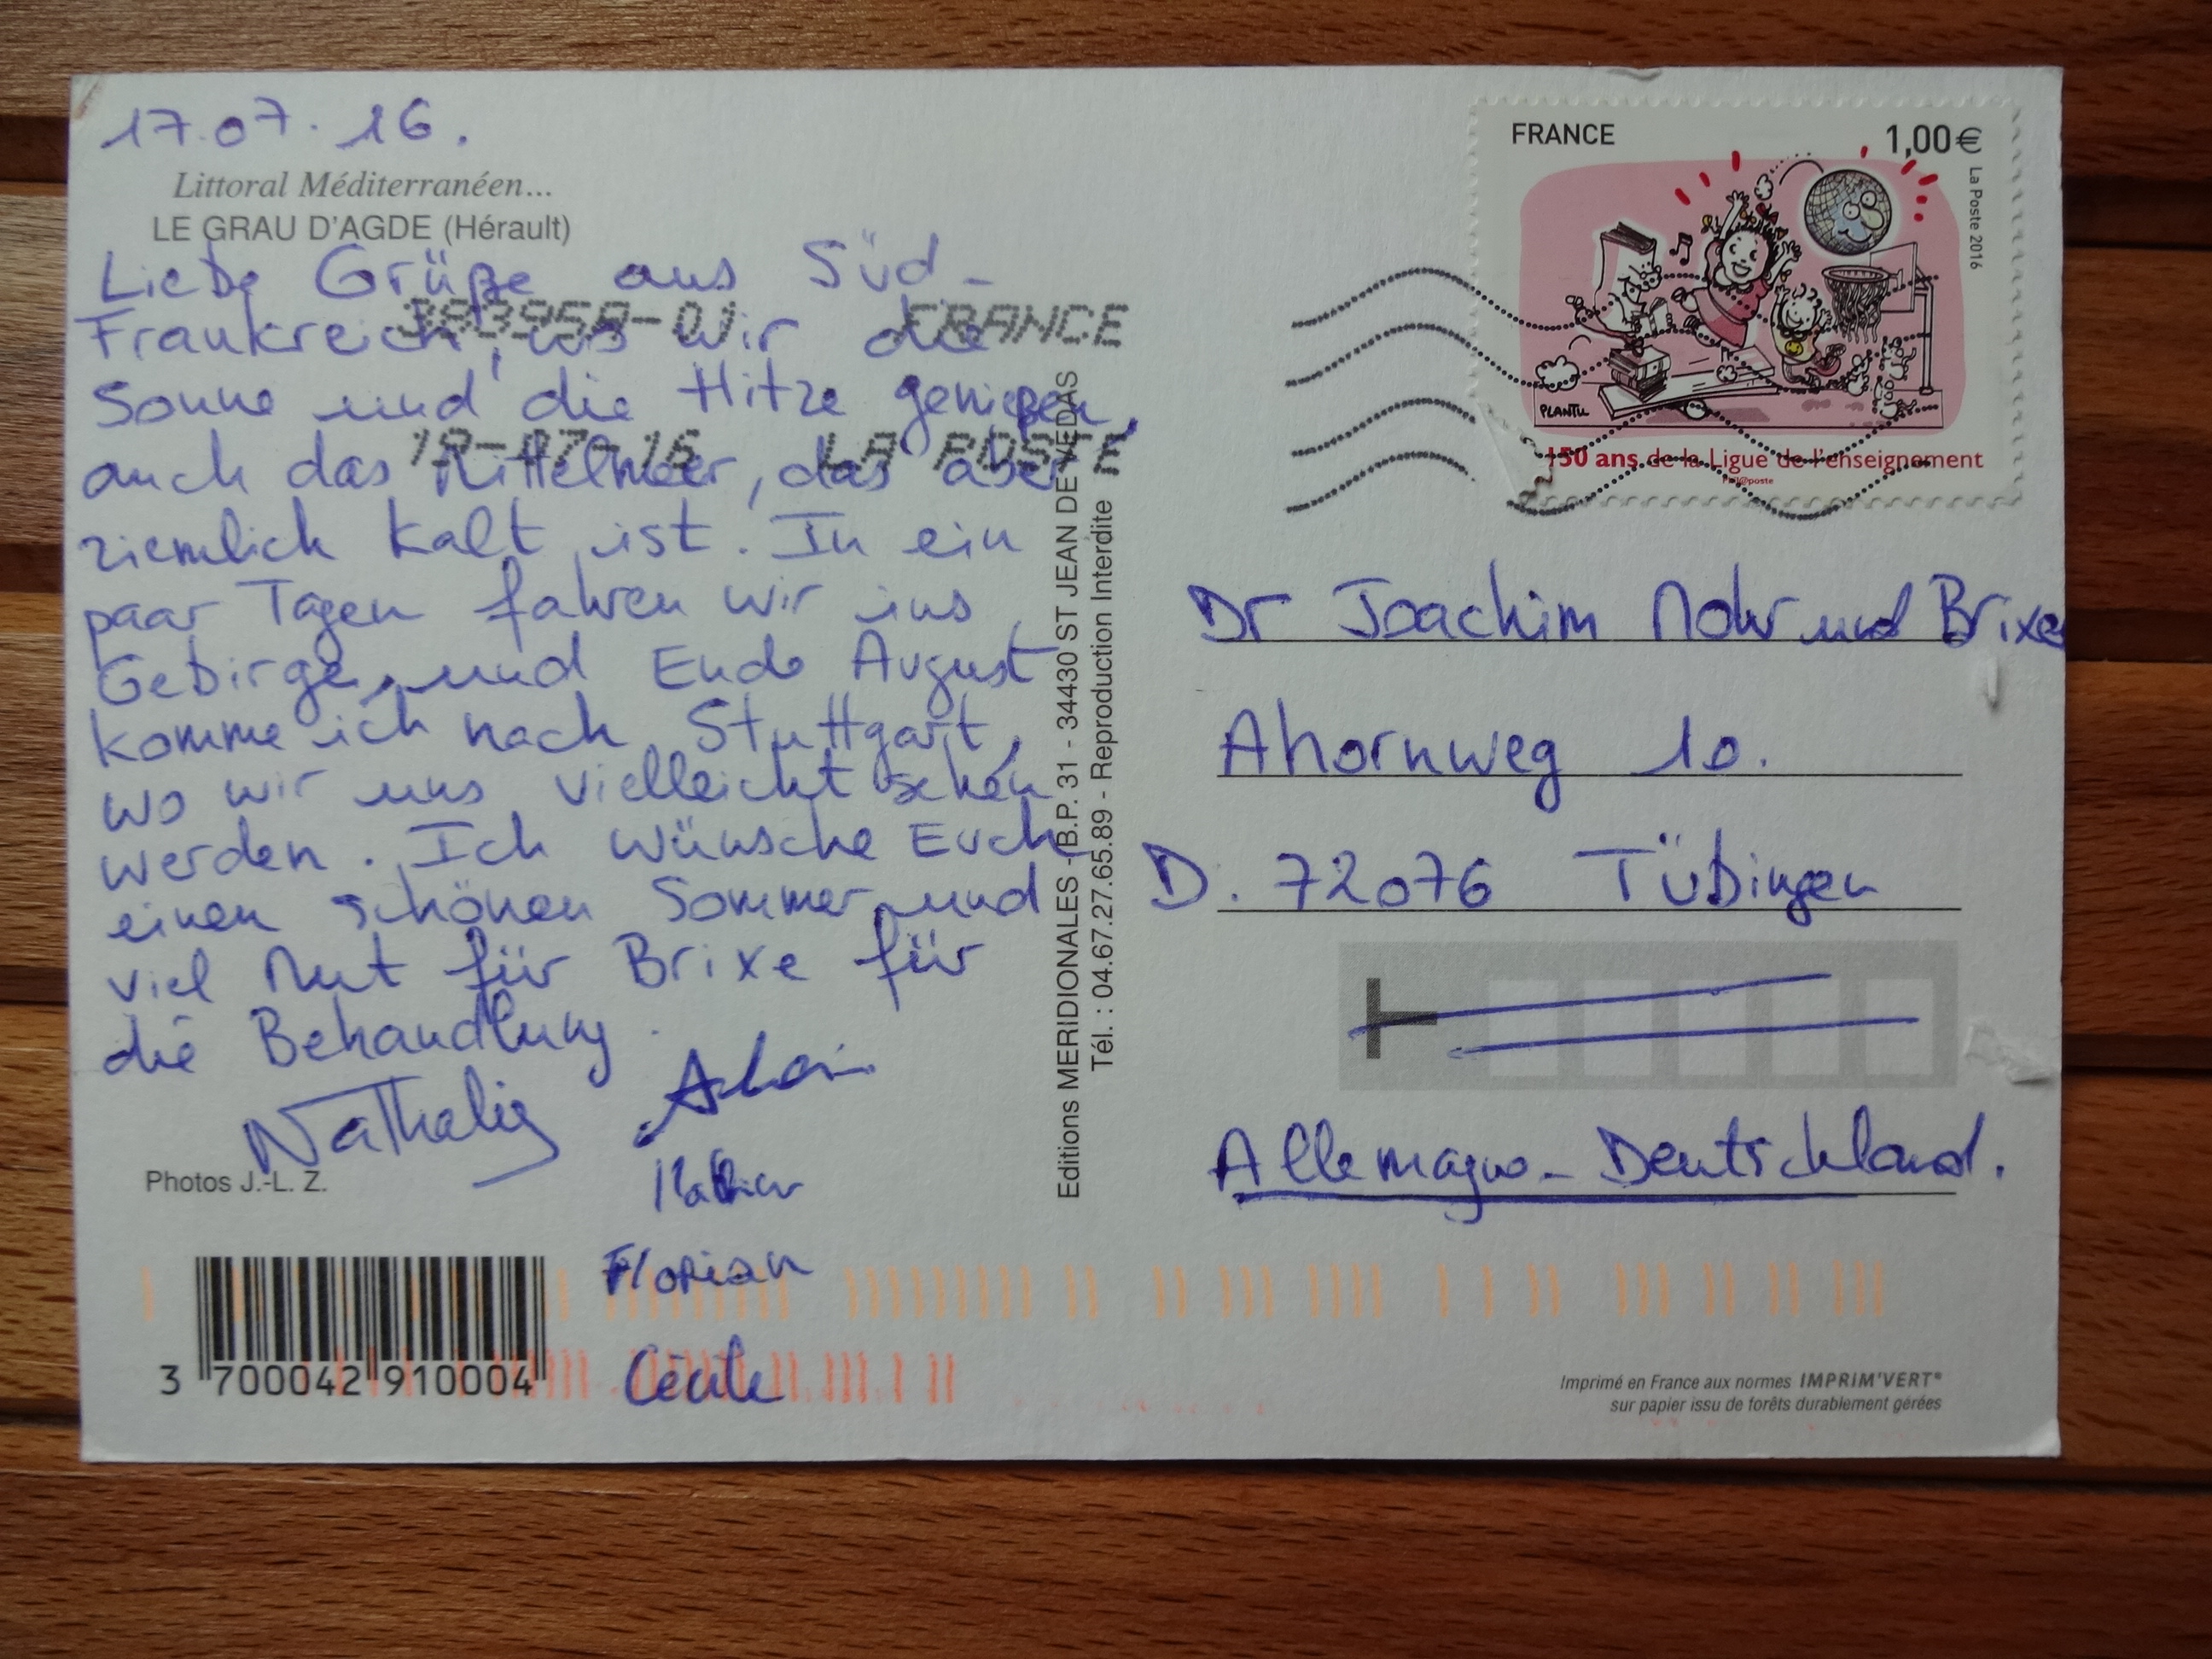 17.07.16.
Littoral Méditerranéen...
LE GRAU D'AGDE (Hérault)
Liebe Grüße aus Süd-
Frankreich, wo wir die
Sonne und die Hitze genießen,
auch das Mittelmeer, das aber
ziemlich kalt ist. In ein
paar Tagen fahren wir ins
Gebirge, und Ende August
komme ich nach Stuttgart,
wo wir uns vielleicht sehen
werden. Ich wünsche Euch
einen schönen Sommer und
viel Mut für Brixe für
die Behandlung.
Nathalie
Florian
Cécile
Photos J.-L. Z.
3 700042 910004
38395A-01 FRANCE
LA POSTE
Editions MERIDIONALES - B.P. 31 - 34430 ST JEAN DE VEDAS
Tél. : 04.67.27.65.89 - Reproduction Interdite
FRANCE 1,00€
La Poste 2016
PLANTU
150 ans de la Ligue de l'enseignement
Phil@poste
Dr Joachim Mohr und Brixe
Ahornweg 10.
D. 72076 Tübingen
Allemagne - Deutschland.
Imprimé en France aux normes IMPRIM'VERT®
sur papier issu de forêts durablement gérées